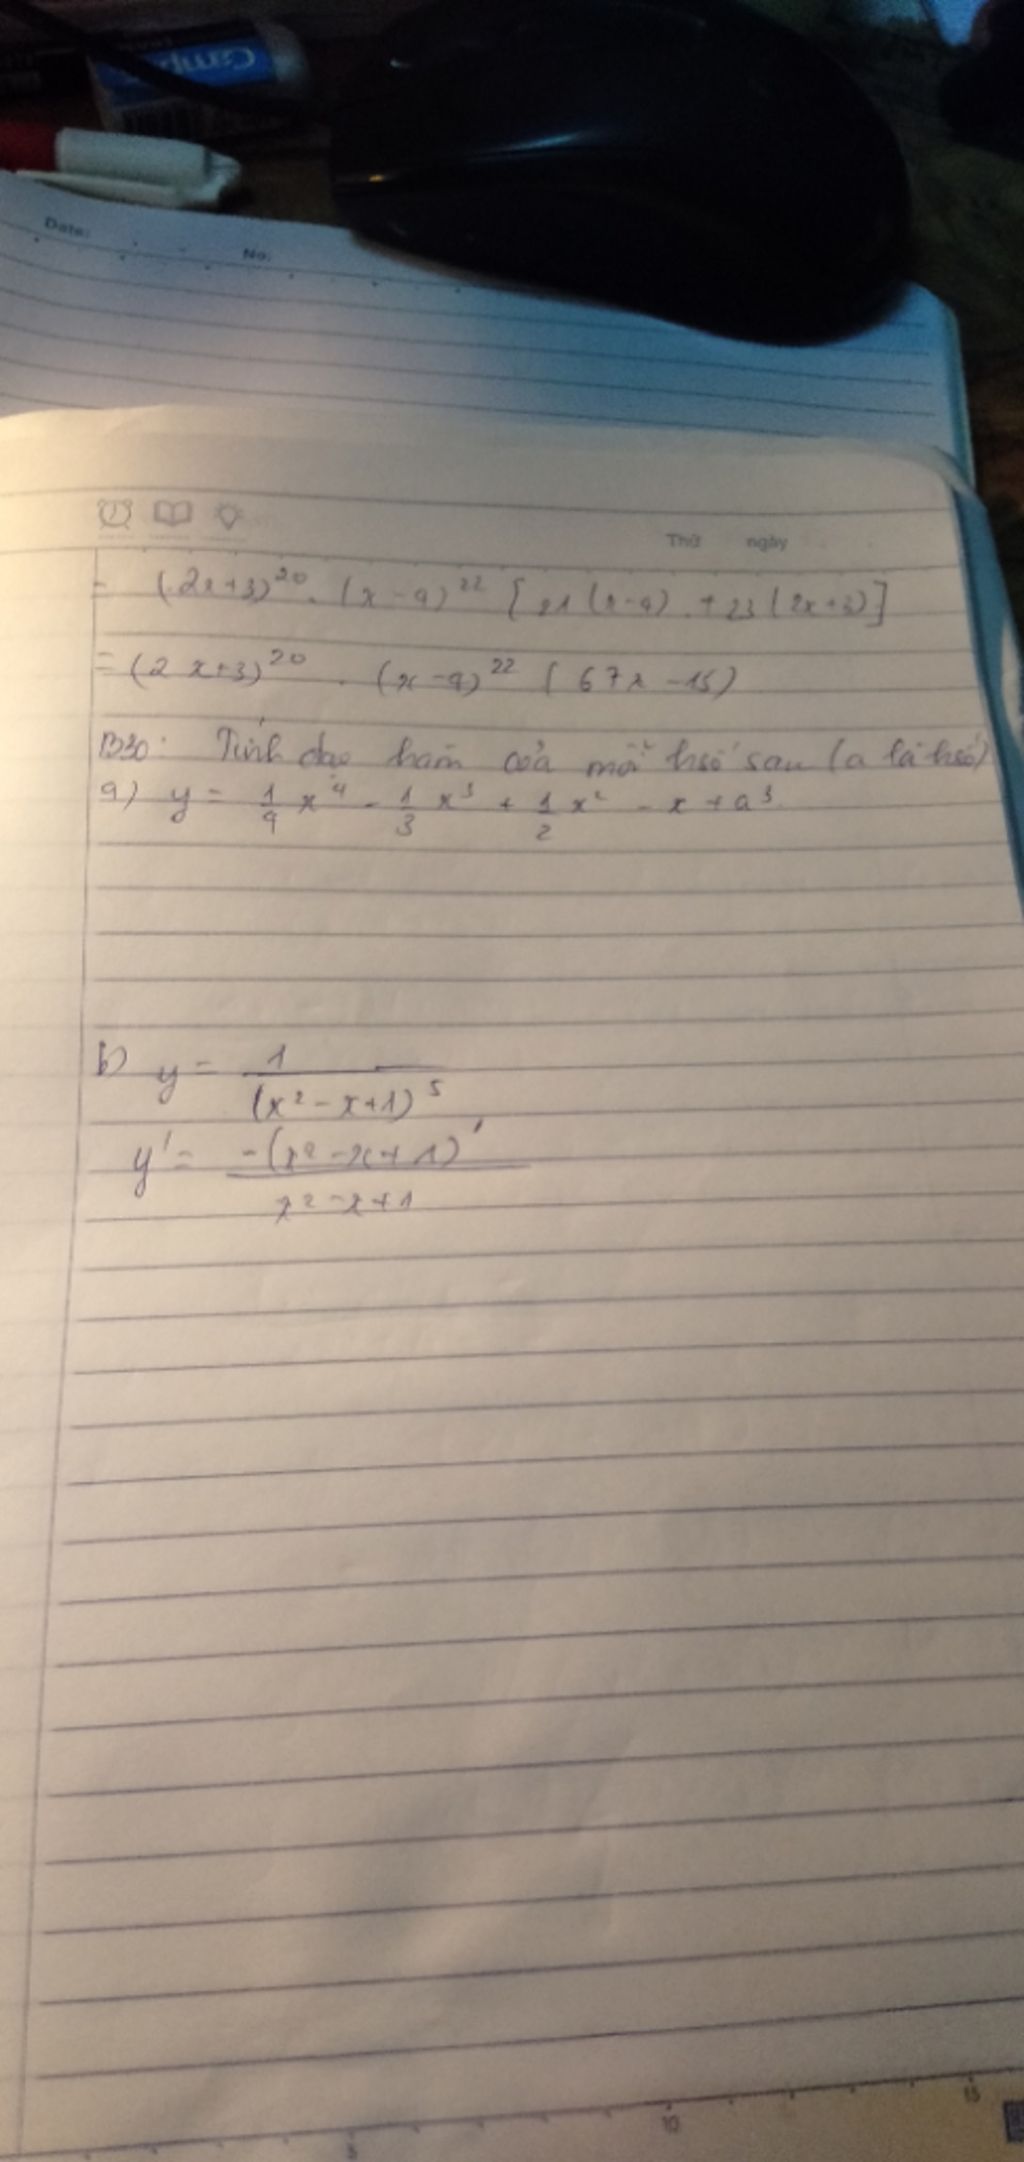 Camp
Date:
No:
Thứ ngày
= (2x+3)²⁰. (x-9)²² [21(x-9) + 23(2x+3)]
= (2x+3)²⁰ . (x-9)²² (67x-15)
B30: Tính đạo hàm của mỗi hsố sau (a là hsố)
a) y = 1/4 x⁴ - 1/3 x³ + 1/2 x² - x + a³
b) y = 1/(x²-x+1)⁵
y' = -(x²-x+1)'/x²-x+1
5 10 15